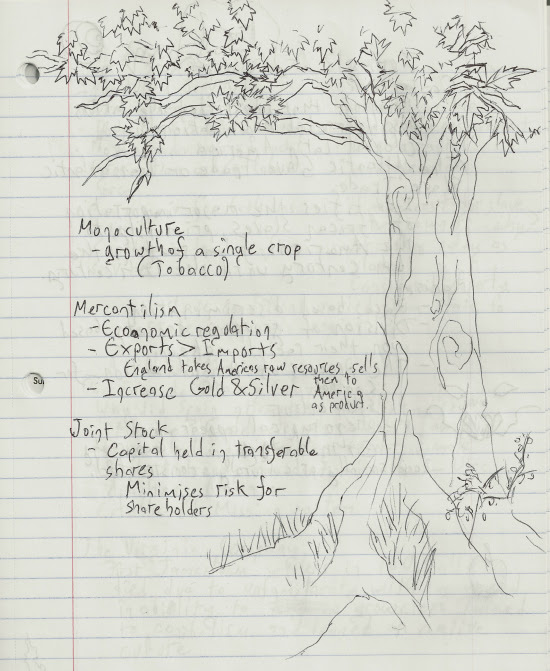 Monoculture
- growth of a single crop
(Tobacco)
Mercantilism
- Economic regulation
- Exports > Imports
England takes Americas raw resources, sells
them to
America
as product.
- Increase Gold & Silver
Joint Stock
- Capital held in transferable
shares
Minimises risk for
shareholders